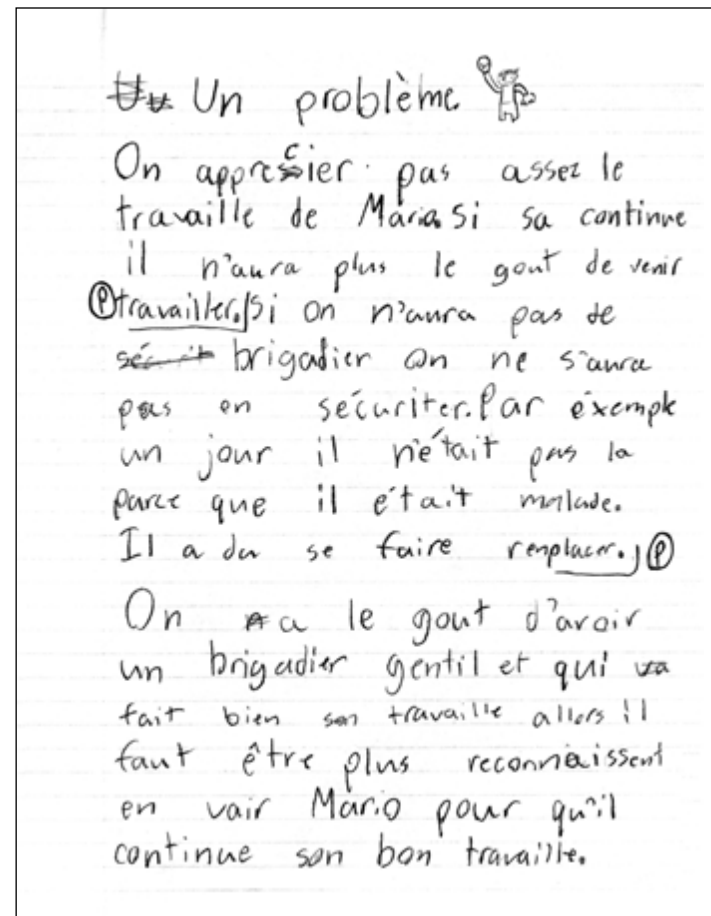 Un problème
On apprecier pas assez le
travaille de Mario. Si sa continue
il n'aura plus le gout de venir
Ⓟtravailler. Si on n'aura pas de
brigadier on ne s'aura
pas en sécuriter. Par exemple
un jour il n'était pas la
parce que il était malade.
Il a du se faire remplacer. Ⓟ
On a le gout d'avoir
un brigadier gentil et qui
fait bien son travaille allors il
faut être plus reconnaissent
en vair Mario pour qu'il
continue son bon travaille.